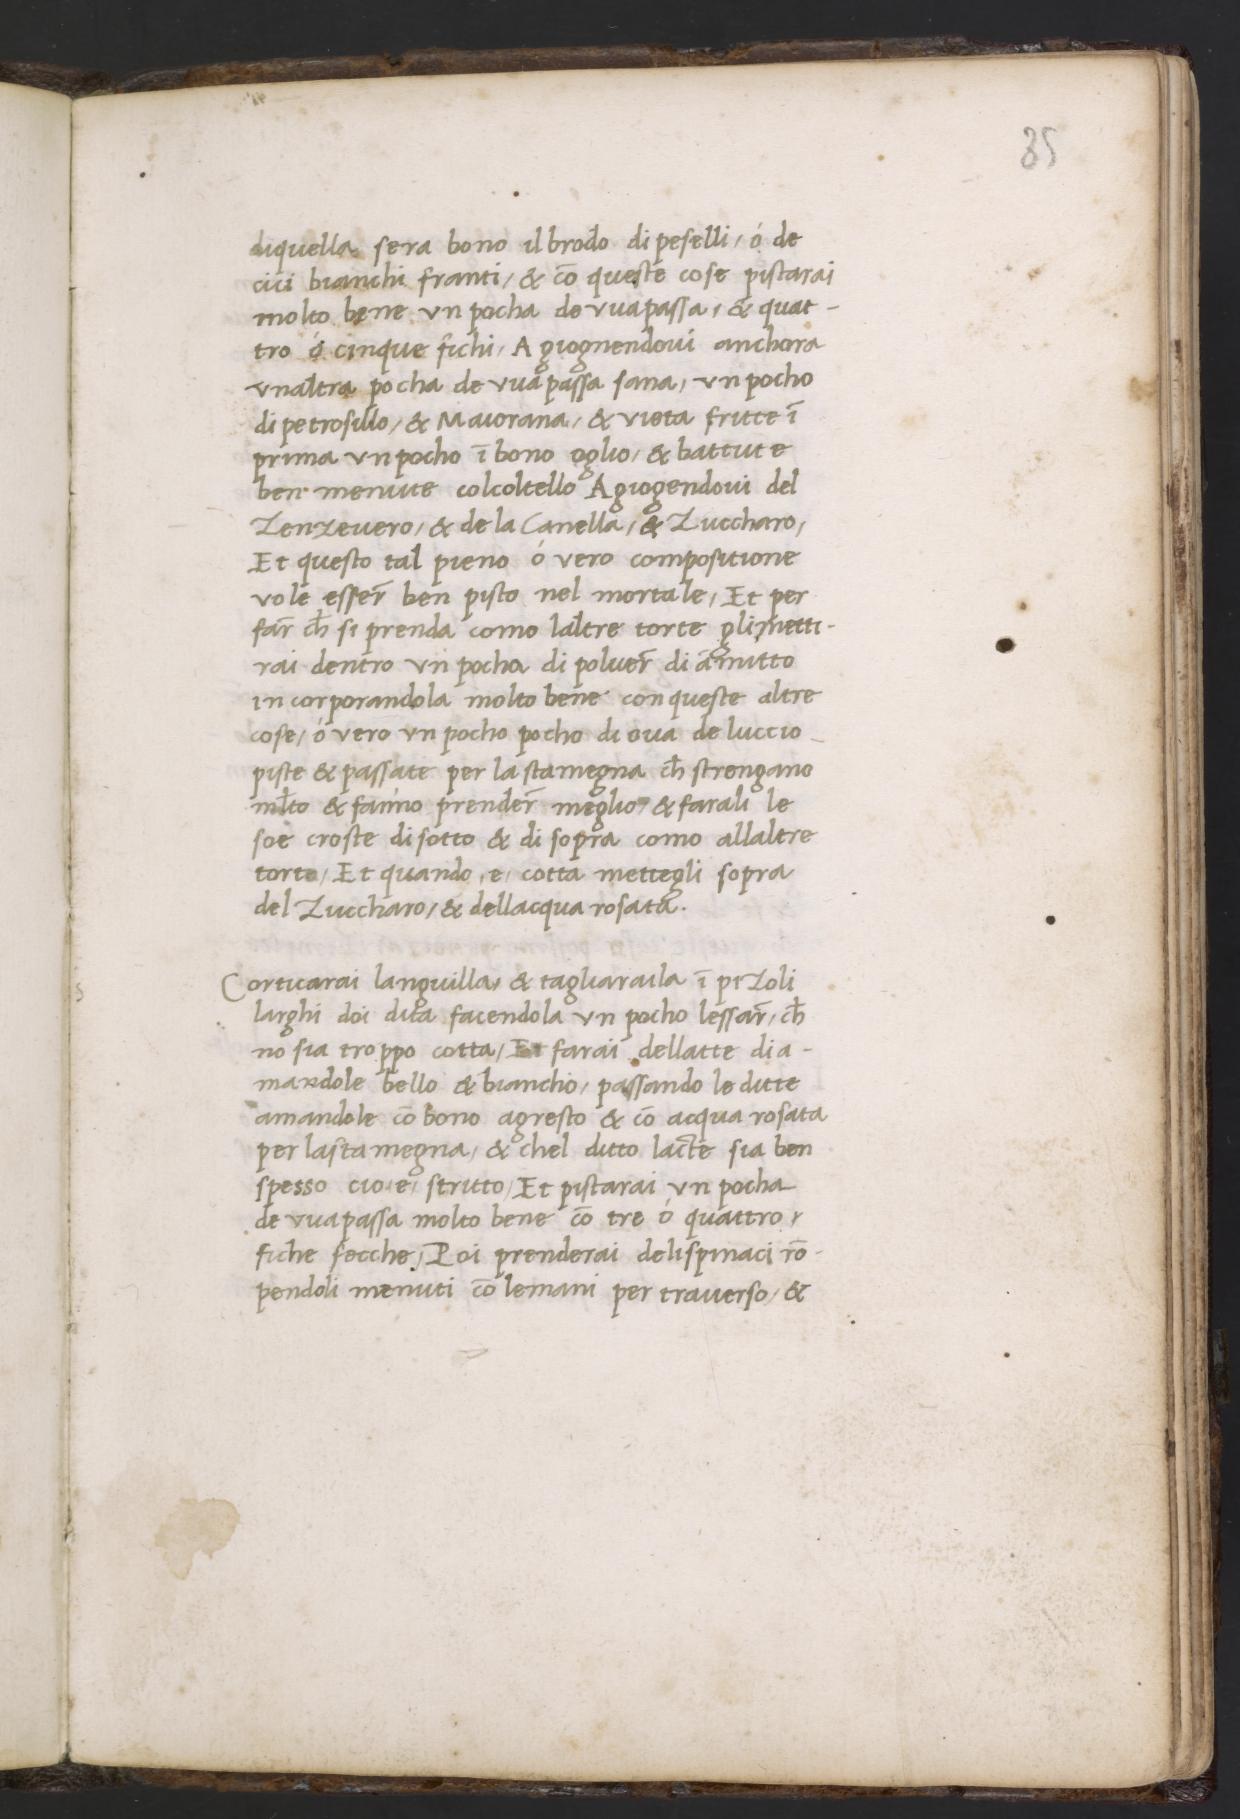 35
diquella sera bono il brodo di peselli, ó de
cici bianchi franti, & cō queste cose pistarai
molto bene vn pocha de vuapassa, & quat-
tro ó cinque fichi, Agiognendoui anchora
vnaltra pocha de vua passa sana, vn pocho
di petrosillo, & Maiorana, & vieta fritte ī
prima vn pocho ī bono oglio, & battute
ben menute colcoltello Agiogendoui del
Zenzeuero, & de la Canella, & Zuccharo,
Et questo tal pieno ó vero compositione
vole esser̄ ben pisto nel mortale, Et per
far̄ ch̄ si prenda como laltre torte gli metti-
rai dentro vn pocha di poluer̄ di amitto
in corporandola molto bene con queste altre
cose, ó vero vn pocho pocho di oua de luccio
piste & passate per la stamegna ch̄ strengano
ml̄to & fanno prender̄ meglio, & farali le
soe croste di sotto & di sopra como allaltre
torte, Et quando, e, cotta mettegli sopra
del Zuccharo, & dellacqua rosata.
Corticarai languilla, & tagliaraila ī peZoli
larghi doi dita facendola vn pocho lessar̄, ch̄
no sia troppo cotta, Et farai dellatte di a-
mandole bello & biancho, passando le ditte
amandole cō bono agresto & cō acqua rosata
per lastamegna, & chel ditto lacte sia ben
spesso cio, e, stritto, Et pistarai vn pocha
de vuapassa molto bene cō tre ó quattro,
fiche secche, Poi prenderai delispinaci rō-
pendoli menuti cō lemani per trauerso, &